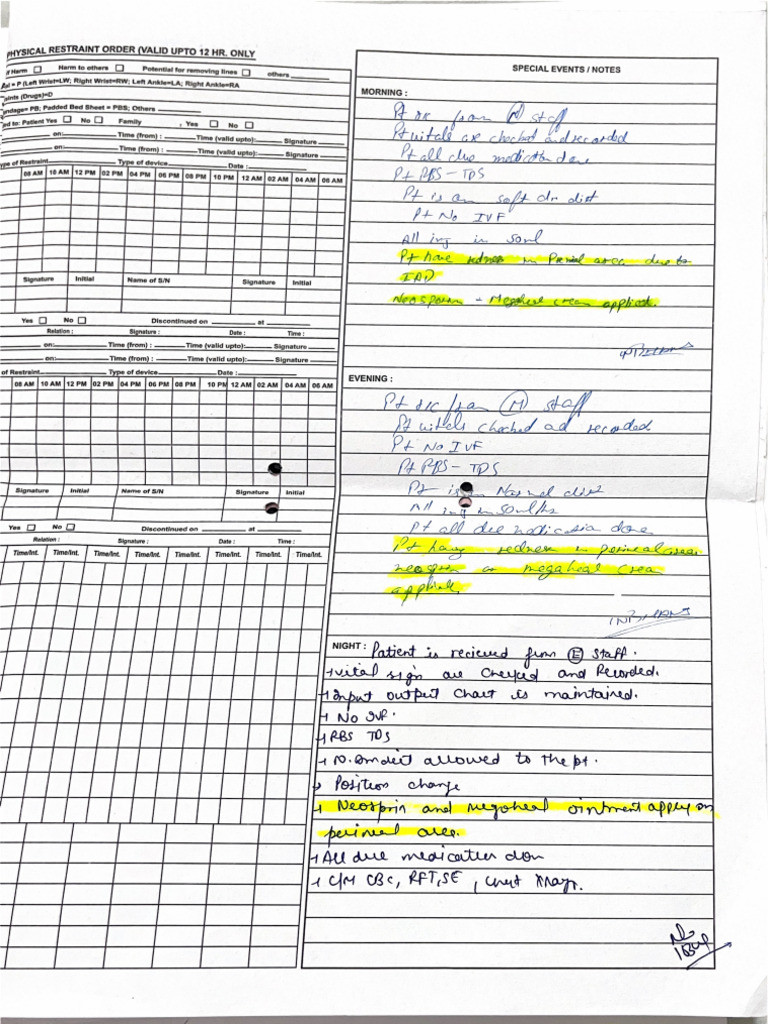 PHYSICAL RESTRAINT ORDER (VALID UPTO 12 HR. ONLY
Harm Harm to others Potential for removing lines others
= P (Left Wrist=LW; Right Wrist=RW; Left Ankle=LA; Right Ankle=RA
(Drugs)=D
PB; Padded Bed Sheet = PBS; Others
to: Patient Yes No Family , Yes No
on: Time (from) : Time (valid upto): Signature
on: Time (from) : Time (valid upto): Signature
of Restraint Type of device Date :
08 AM 10 AM 12 PM 02 PM 04 PM 06 PM 08 PM 10 PM 12 AM 02 AM 04 AM 06 AM
Signature Initial Name of S/N Signature Initial
Yes No Discontinued on at
Relation : Signature : Date : Time :
on: Time (from) : Time (valid upto): Signature
on: Time (from) : Time (valid upto): Signature
of Restraint Type of device Date :
08 AM 10 AM 12 PM 02 PM 04 PM 06 PM 08 PM 10 PM 12 AM 02 AM 04 AM 06 AM
Signature Initial Name of S/N Signature Initial
Yes No Discontinued on at
Relation : Signature : Date : Time :
Time/Int. Time/Int. Time/Int. Time/Int. Time/Int. Time/Int. Time/Int. Time/Int.
SPECIAL EVENTS / NOTES
MORNING :
Pt from (N) staff
Pt vitals are checked and recorded
Pt all due medication done
Pt RBS - TDS
Pt is on soft dist
Pt No IVF
All inj in
Pt have redness in area due to
IAD
Neosporin - Megaheal cream applied.
EVENING :
Pt rec from (M) staff
Pt vitals checked ad recorded
Pt No IVF
Pt RBS - TDS
Pt is Normal dist
All inj in
Pt all due medication done
Pt having redness in perineal area
or megaheal
NIGHT : Patient is recieved from (E) staff.
vital sign are checked and Recorded.
Input output chart is maintained.
No IVF.
RBS TDS
allowed to the pt.
Position change
Neosprin and megaheal ointment apply on
perineal area.
All due medication don
C/M CBC, RFT, SE, chest Xray.